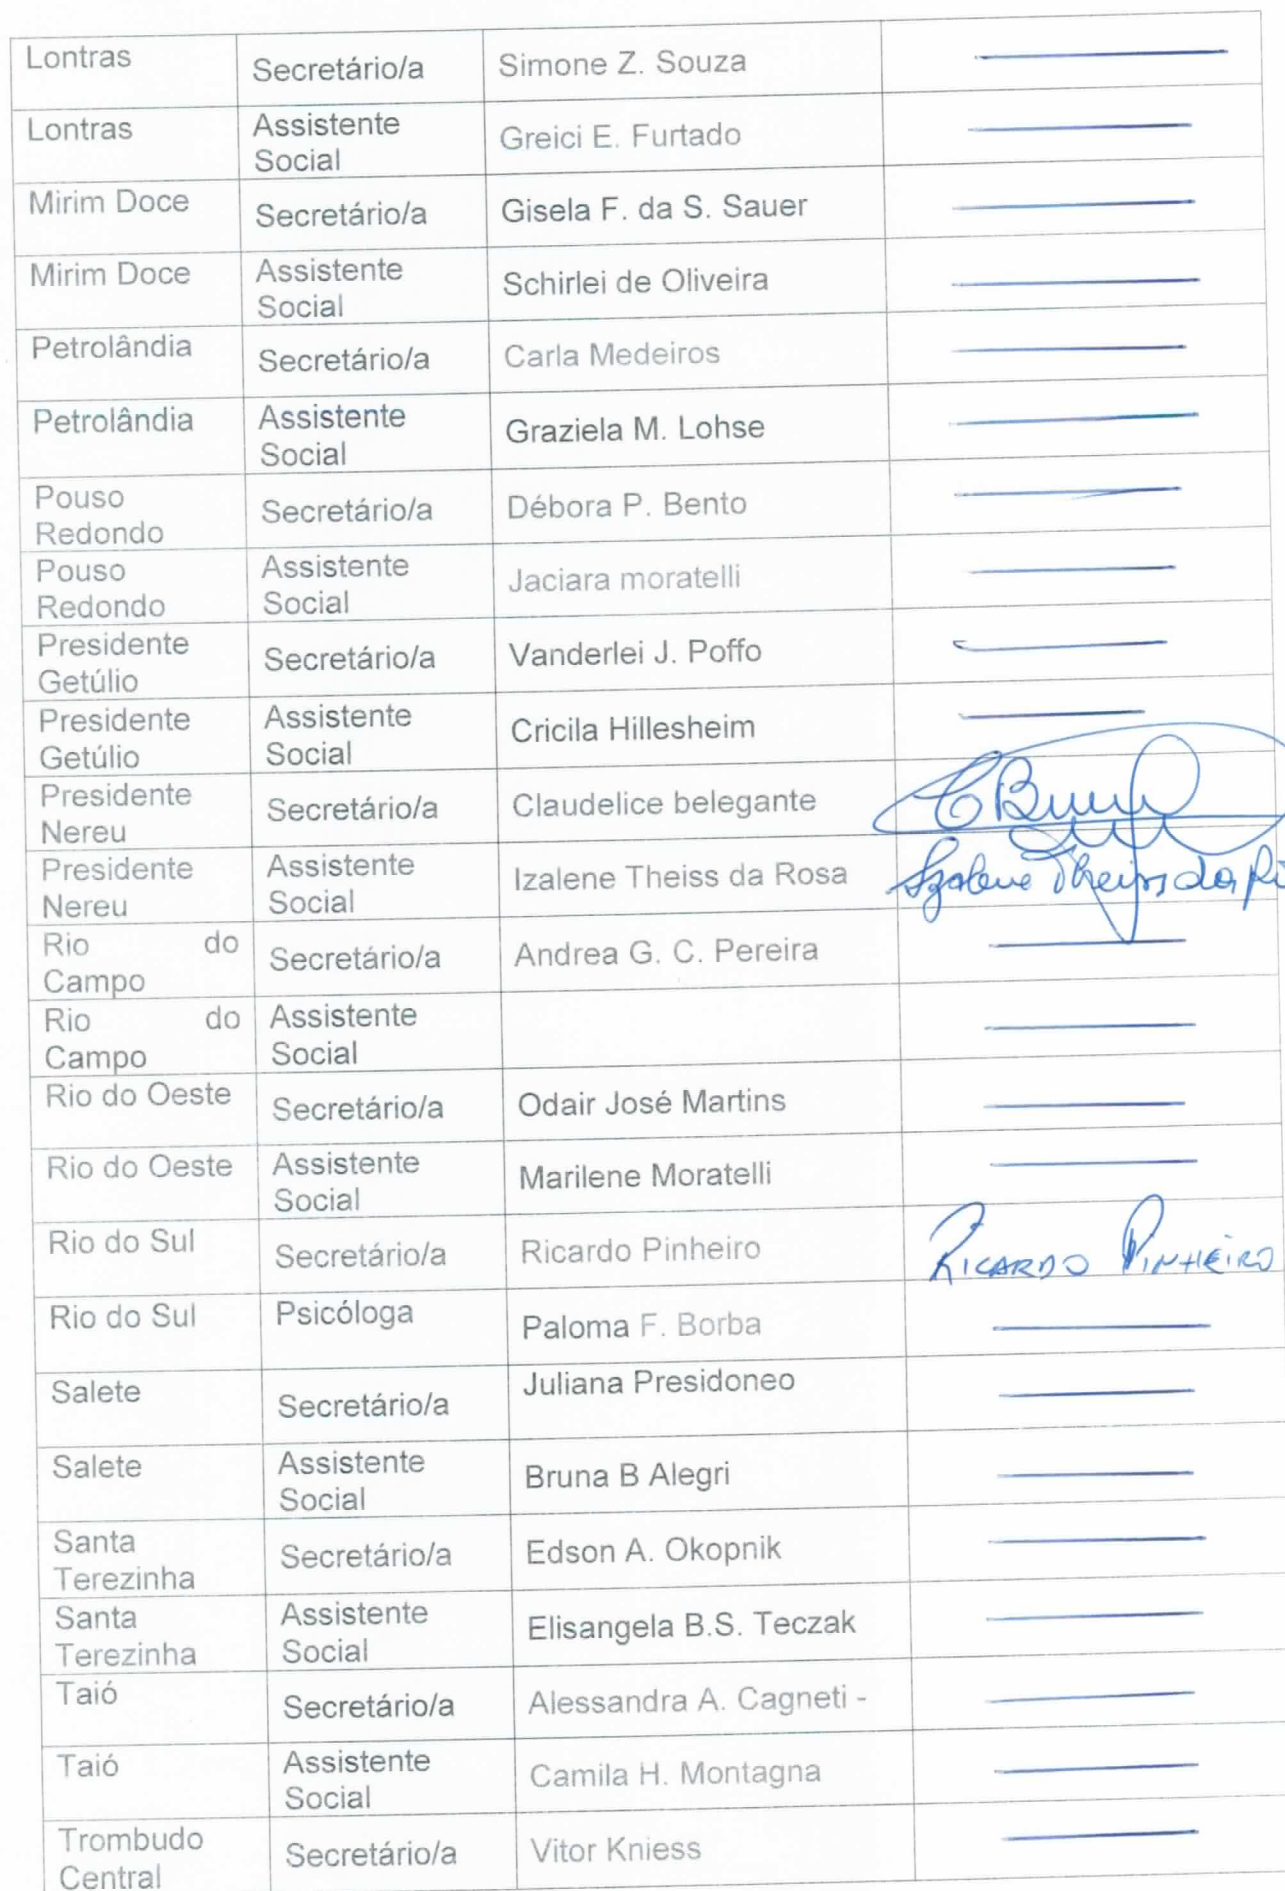 Lontras Secretário/a Simone Z. Souza
Lontras Assistente Social Greici E. Furtado
Mirim Doce Secretário/a Gisela F. da S. Sauer
Mirim Doce Assistente Social Schirlei de Oliveira
Petrolândia Secretário/a Carla Medeiros
Petrolândia Assistente Social Graziela M. Lohse
Pouso Redondo Secretário/a Débora P. Bento
Pouso Redondo Assistente Social Jaciara moratelli
Presidente Getúlio Secretário/a Vanderlei J. Poffo
Presidente Getúlio Assistente Social Cricila Hillesheim
Presidente Nereu Secretário/a Claudelice belegante
Presidente Nereu Assistente Social Izalene Theiss da Rosa Izalene Theiss da
Rio do Campo Secretário/a Andrea G. C. Pereira
Rio do Campo Assistente Social
Rio do Oeste Secretário/a Odair José Martins
Rio do Oeste Assistente Social Marilene Moratelli
Rio do Sul Secretário/a Ricardo Pinheiro RICARDO PINHEIRO
Rio do Sul Psicóloga Paloma F. Borba
Salete Secretário/a Juliana Presidoneo
Salete Assistente Social Bruna B Alegri
Santa Terezinha Secretário/a Edson A. Okopnik
Santa Terezinha Assistente Social Elisangela B.S. Teczak
Taió Secretário/a Alessandra A. Cagneti -
Taió Assistente Social Camila H. Montagna
Trombudo Central Secretário/a Vitor Kniess